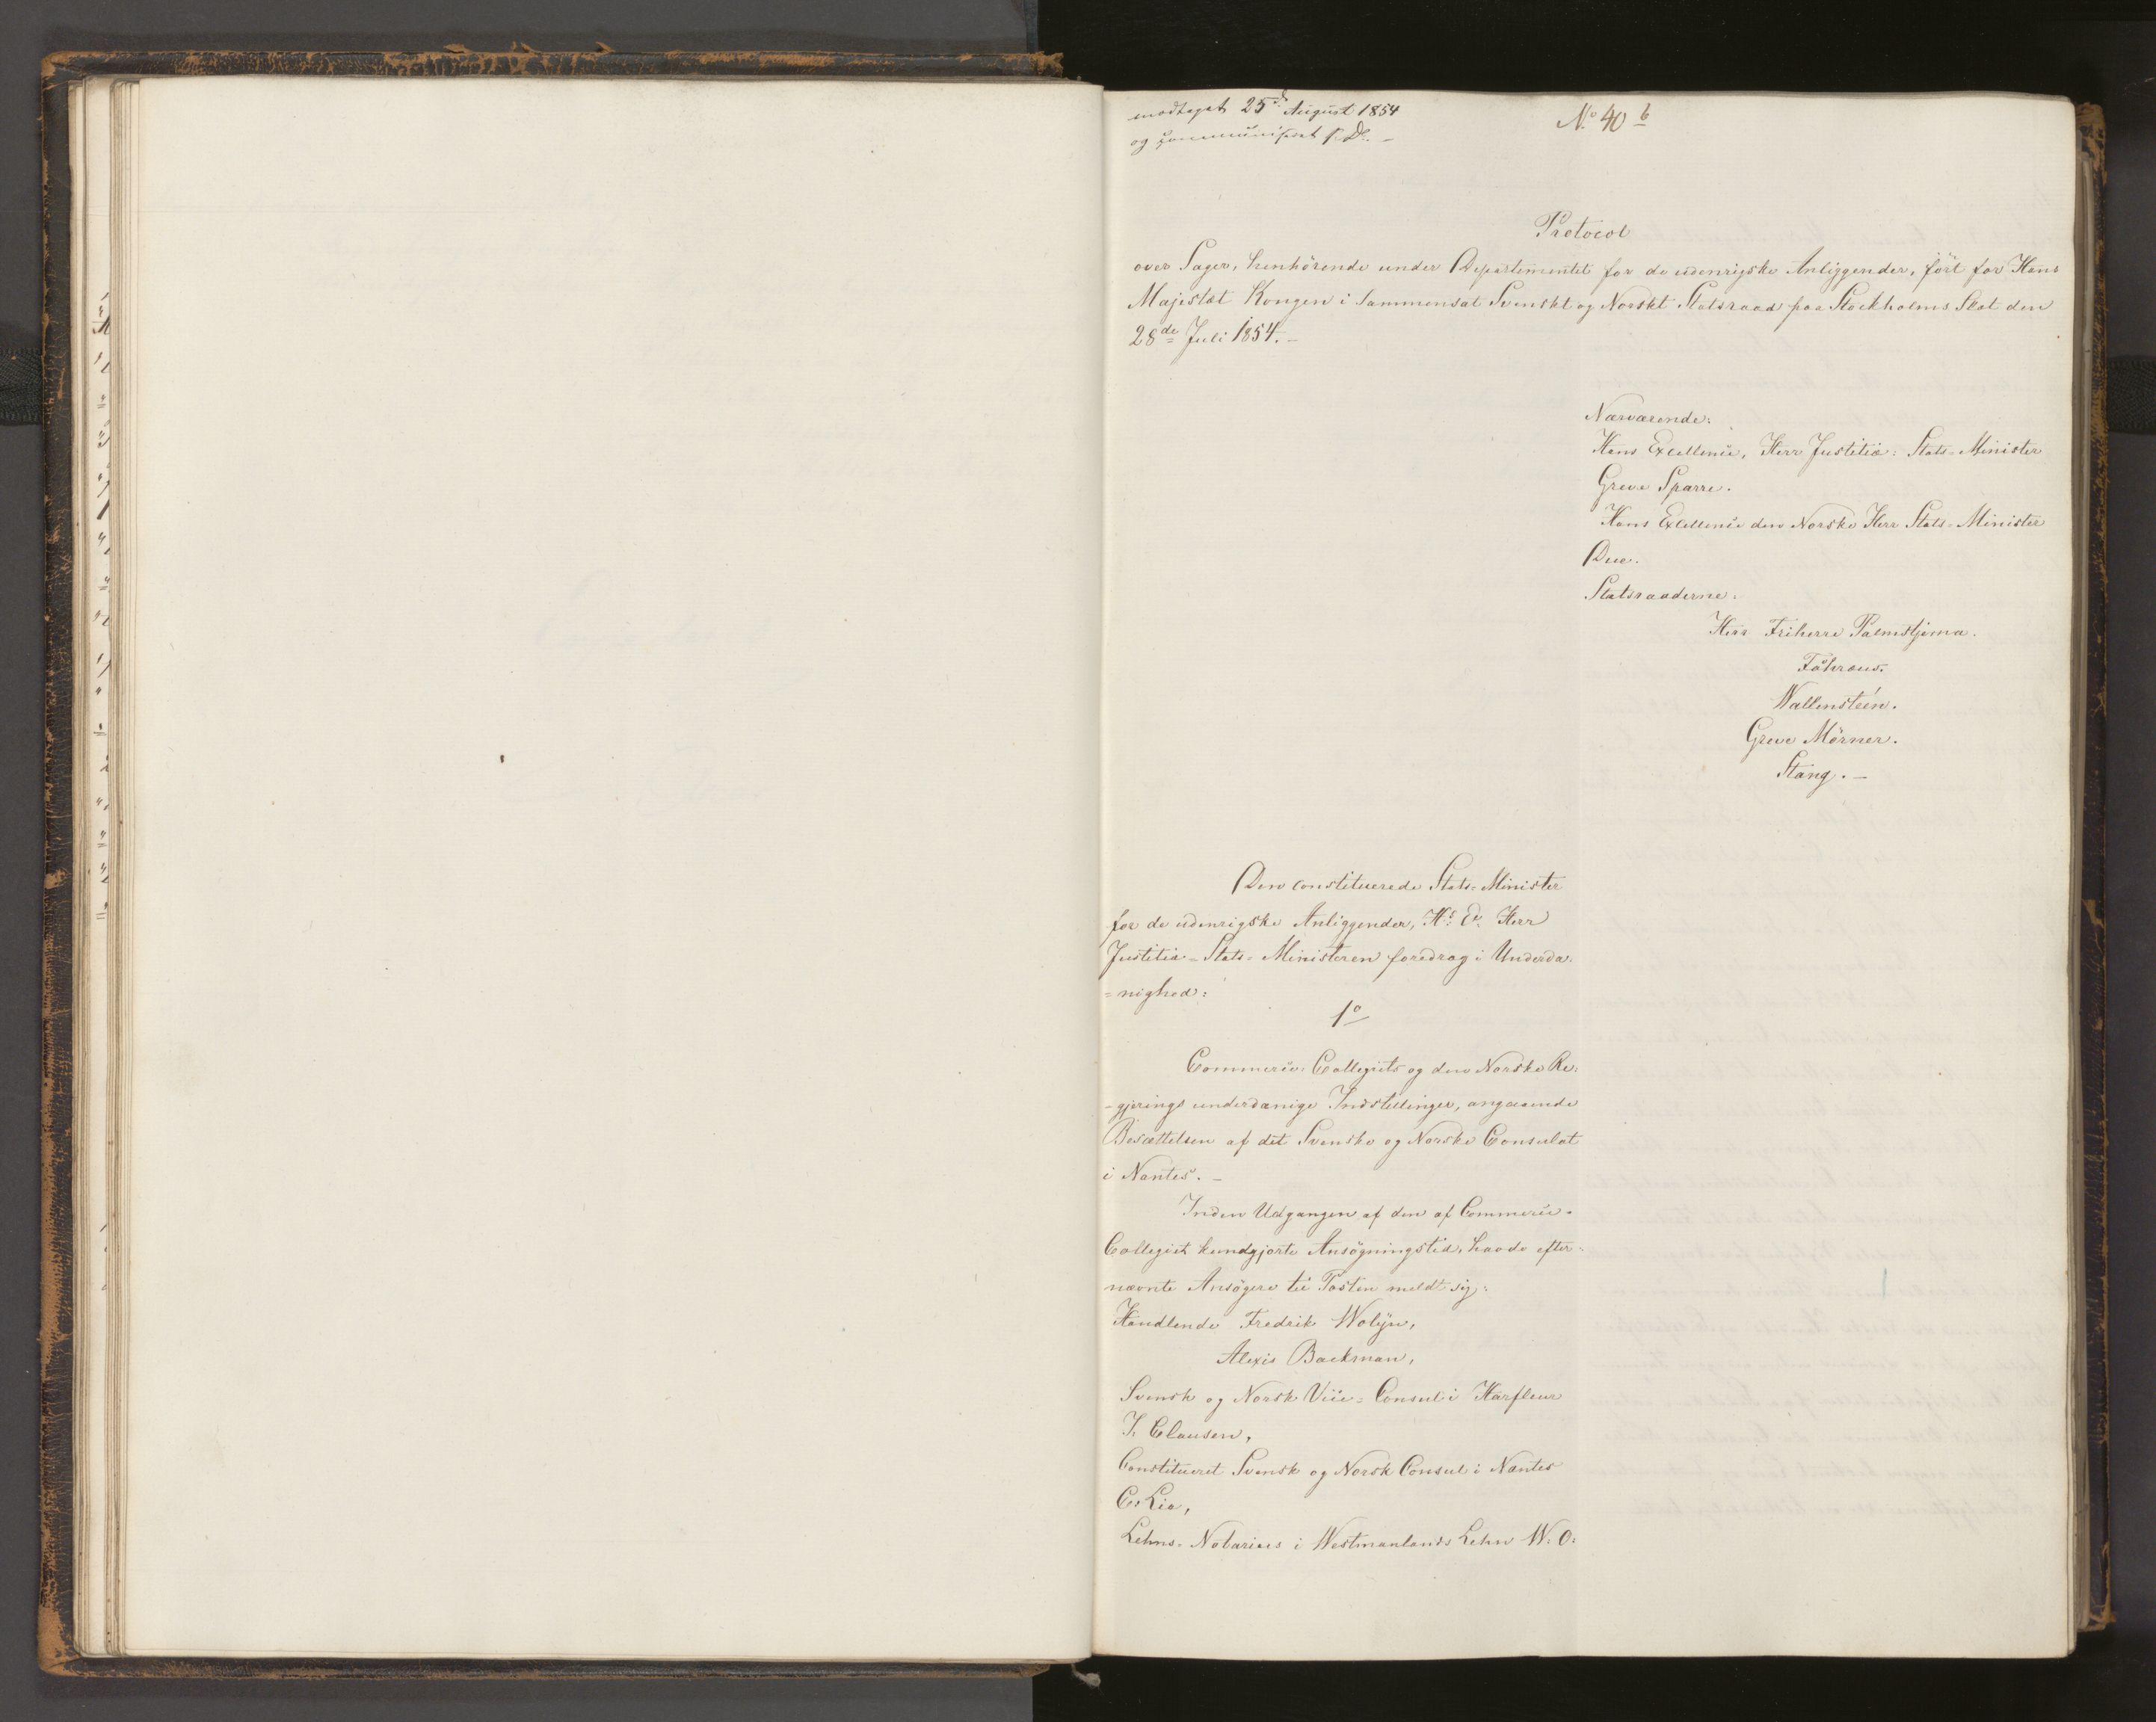 modtaget 25d August 1854
og communiseret s. D. –
No 40 b
Protocol
over Sager, henhörende under Departementet for de udenrigske Anliggender, fört for Hans
Majestæt Kongen i Sammensat Svenskt og Norskt Statsraad paa Stockholms Slot den
28de Juli 1854. –
Nærværende:
Hans Excellence, Herr Justitiæ: Stats-Minister
Greve Sparre.
Hans Excellence den Norske Herr Stats-Minister
Due.
Statsraaderne:
Herr Friherre Palmstjerna.
Fåhræus.
Wallensteén.
Greve Mörner.
Stang. –
Den constituerede Stats-Minister
for de udenrigske Anliggender, Hs. Ex. Herr
Justitiæ-Stats-Ministeren foredrog i Underda-
=nighed:
1o
Commerce-Collegiets og den Norske Re-
-gjerings underdanige Indstillinger, angaaende
Besættelsen af det Svenske og Norske Consulat
i Nantes. –
Inden Udgangen af den af Commerce-
Collegiet kundgjorte Ansögningstid, havde efter-
nævnte Ansögere til Posten meldt sig:
Handlende Fredrik Wolÿn,
Alexis Backman,
Svensk og Norsk Vice-Consul i Harfleur
J. Clausen,
Constitueret Svensk og Norsk Consul i Nantes
C. Lia,
Lehns-Notarius i Westmanlands Lehn W. O.